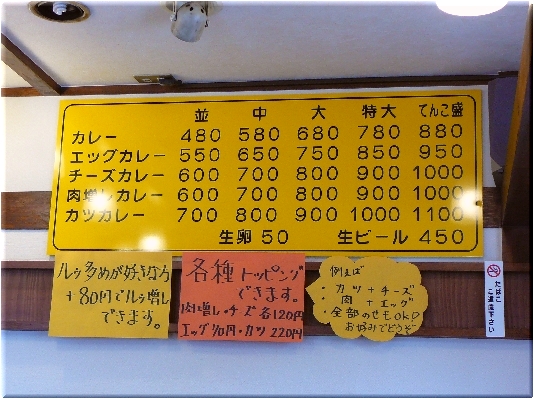 並 中 大 特大 てんこ盛
カレー 480 580 680 780 880
エッグカレー 550 650 750 850 950
チーズカレー 600 700 800 900 1000
肉増しカレー 600 700 800 900 1000
カツカレー 700 800 900 1000 1100
生卵 50 生ビール 450
ルゥ多めが好きな方
+80円でルゥ増し
できます。
各種トッピング
できます。
肉増し・チーズ各120円
エッグ70円・カツ220円
例えば
・カツ+チーズ
・肉+エッグ
・全部のせもOKP
お好みでどうぞ
たばこ
ご遠慮下さい